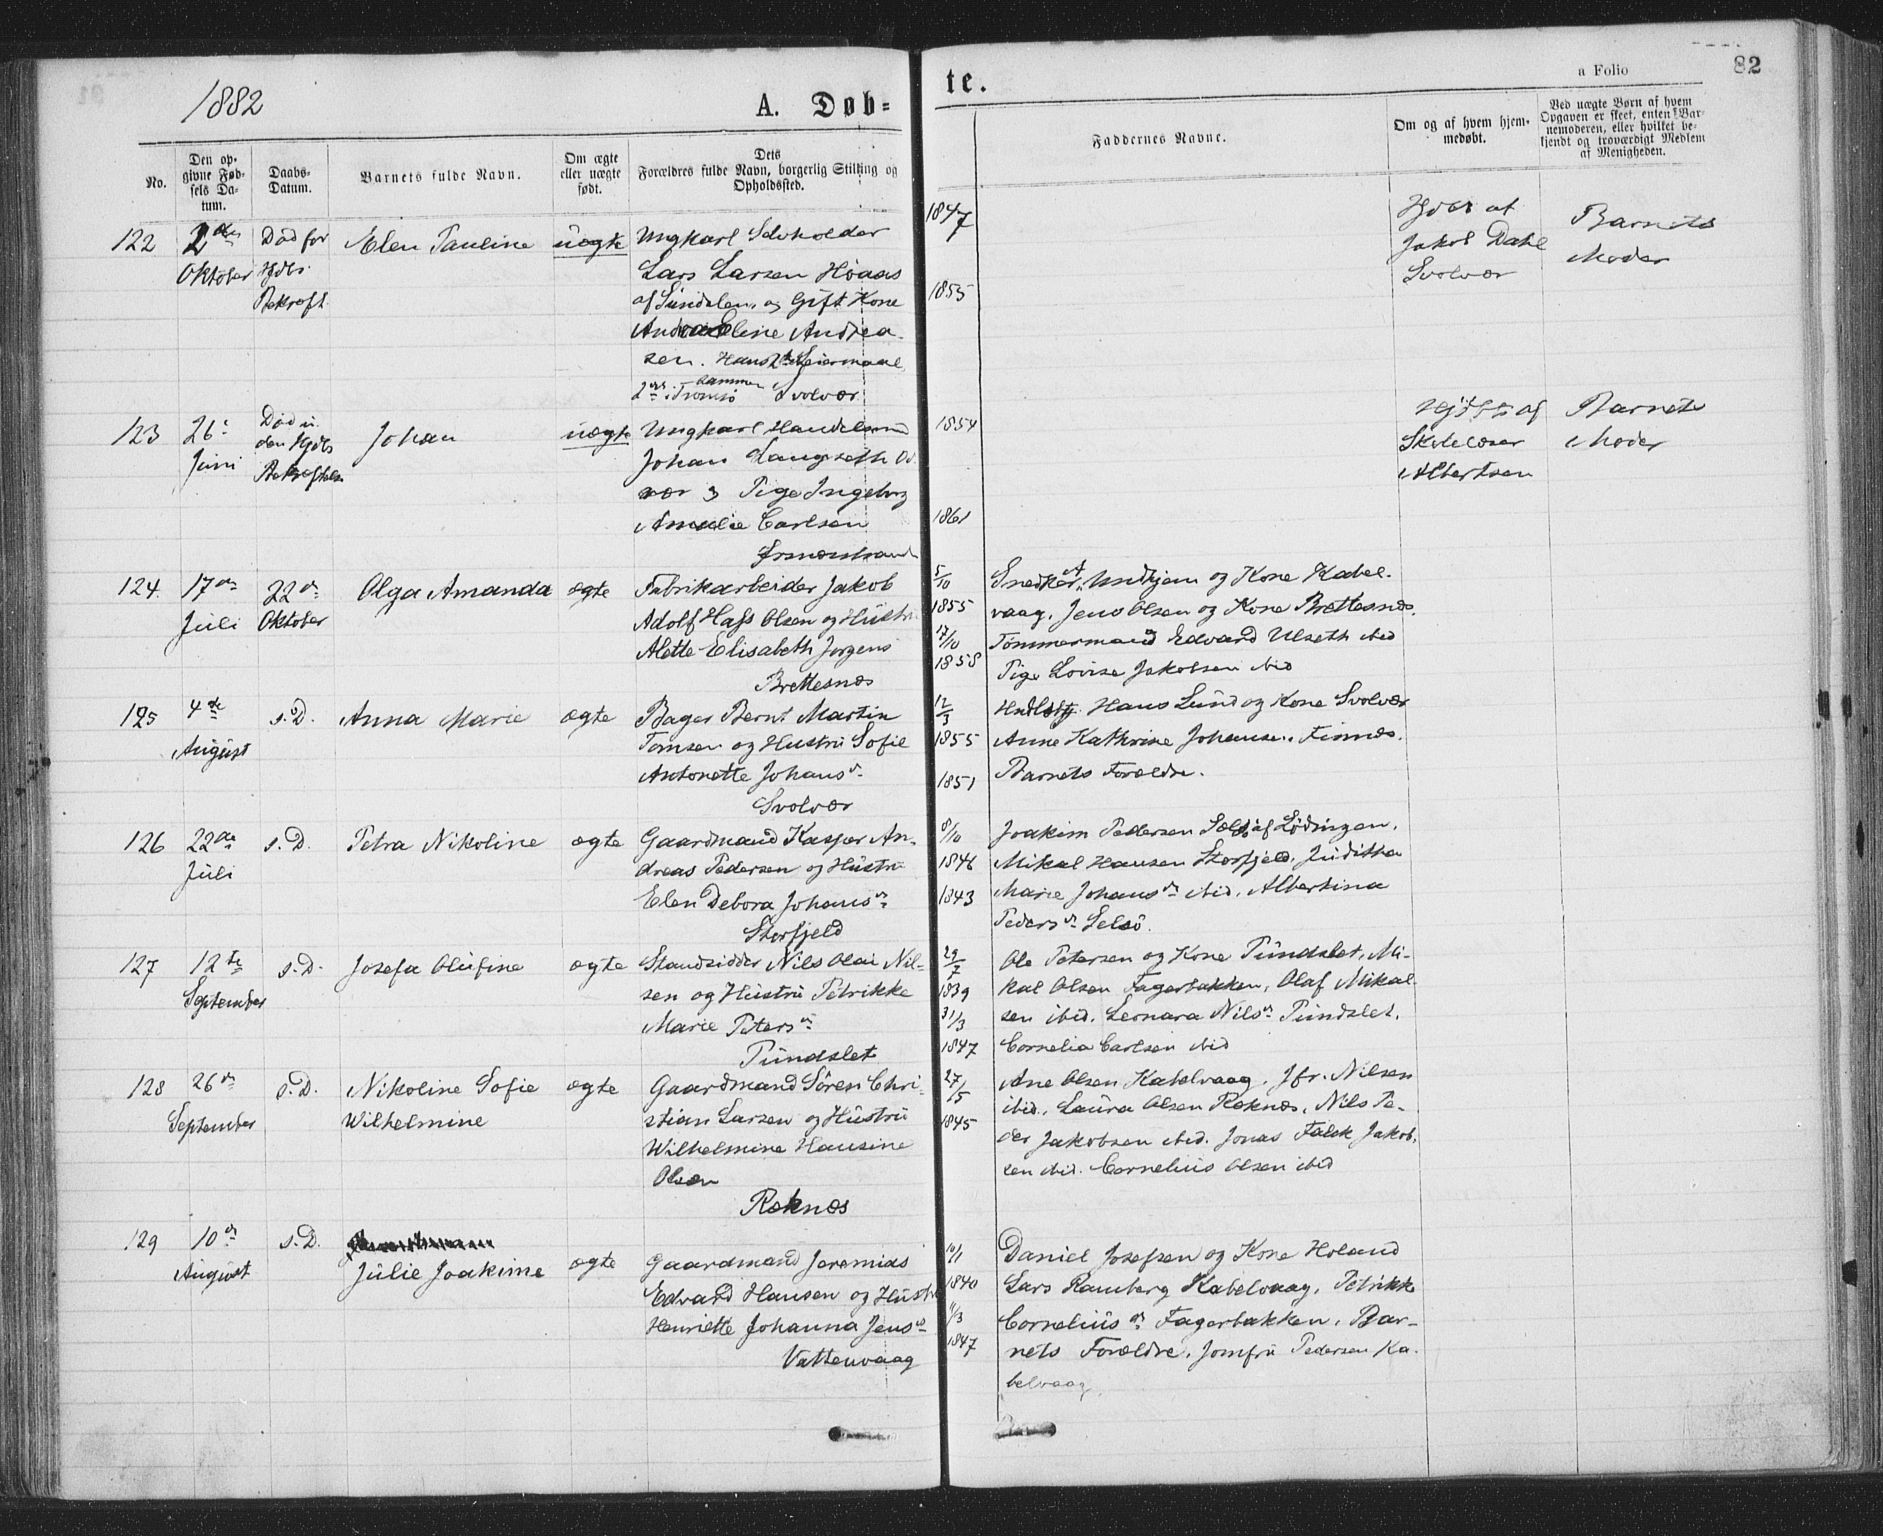 1882
A. Døb=
te.
a Folio
82
No.
Den op=
givne Fød=
sels Da=
tum.
Daabs=
Datum.
Barnets fulde Navn.
Om ægte
eller uægte
født.
Dets
Forældres fulde Navn, borgerlig Stilling og
Opholdssted.
Faddernes Navne.
Om og af hvem hjem=
medøbt.
Ved uægte Børn af hvem
Opgaven er skeet, enten Bar=
nemoderen, eller hvilket be=
kjendt og troværdigt Medlem
af Menigheden.
122
2den
Oktober
Død før
Hjdbs
Bekræft.
Elen Pauline
uægte
Ungkarl Selvholder
Lars Larsen Høaas
af Sundalen, og Gift Kone
Eline Andrea
sen. Hans 2det Leiermaal
Tromsø Svolvær
1847
1855
Hjdbt af
Jakob Dahl
Svolvær
Barnets
Moder
123
26de
Juni
Død u
den Hjdbs
Bekræftelse
Johan
uægte
Ungkarl Handelsmd
Johan Langseth
vær & Pige Ingeborg
Amalie Carlsen
Ørsnæsstrand
1854
1861
Hjdbt af
Skolelærer
Albertsen
Barnets
Moder
124.
17de
Juli
22de
Oktober
Olga Amanda
ægte
Fabrikarbeider Jakob
Adolf Hass Olsen og Hustru
Alette Elisabeth Jørgens
Brettesnæs
5/10
1855
17/10
1858
Snedker A. Undhjem og Kone Kabel-
vaag, Jens Olsen og Kone Brettesnæs.
Tømmermand Edvard Ulseth ibid
Pige Lovise Jakobsen ibid
125
4de
August
s.D.
Anna Marie
ægte
Bager Bernt Martin
Tomsen og Hustru Sofie
Antonette Johansd.
Svolvær
12/3
1855
1851
Hans Lund og Kone Svolvær
Anne Kathrine Johansen, Finnæs.
Barnets Forældre.
126
22de
Juli
s.D.
Petra Nikoline
ægte
Gaardmand Kasper An-
dreas Pedersen og Hustru
Elen Debora Johansd.
Storfjeld
8/10
1846
1843
Joakim Pedersen Selsø af Lødingen,
Mikal Hansen Storfjeld, Juditha
Marie Johansd. ibid, Albertina
Pedersd. Selsø.
127
12te
September
s.D.
Josefa Olufine
ægte
Strandsidder Nils Olai Nil-
sen og Hustru Petrikke
Marie Petersd.
Pundslet
29/7
1839
31/3
1847
Ole Petersen og Kone Pundslet, Mi-
kal Olsen Fagerbakken, Olaf Mikal
sen ibid. Leonara Nilsd. Pundslet,
Cornelia Carlsen ibid
128
26de
September
s.D.
Nikoline Sofie
Wilhelmine
ægte
Gaardmand Søren Chri-
stian Larsen og Hustru
Wilhelmine Hansine
Olsen
Røknæs
27/5
1845
Ane Olsen Kabelvaag, Jfr. Nilsen
ibid, Laura Olsen Røknæs, Nils Pe-
der Jakobsen ibid. Jonas Falck Jakob-
sen ibid. Cornelius Olsen ibid
129
10de
August
s.D.
Julie Joakime
ægte
Gaardmand Jeremias
Edvard Hansen og Hustru
Henriette Johanna Jensd.
Vattenvaag
10/1
1840
11/3
1847
Daniel Josefsen og Kone Holand
Lars Ramberg Kabelvaag, Petrikke
Corneliusd. Fagerbakken, Bar-
nets Forældre, Jomfru Pedersen Ka-
belvaag.